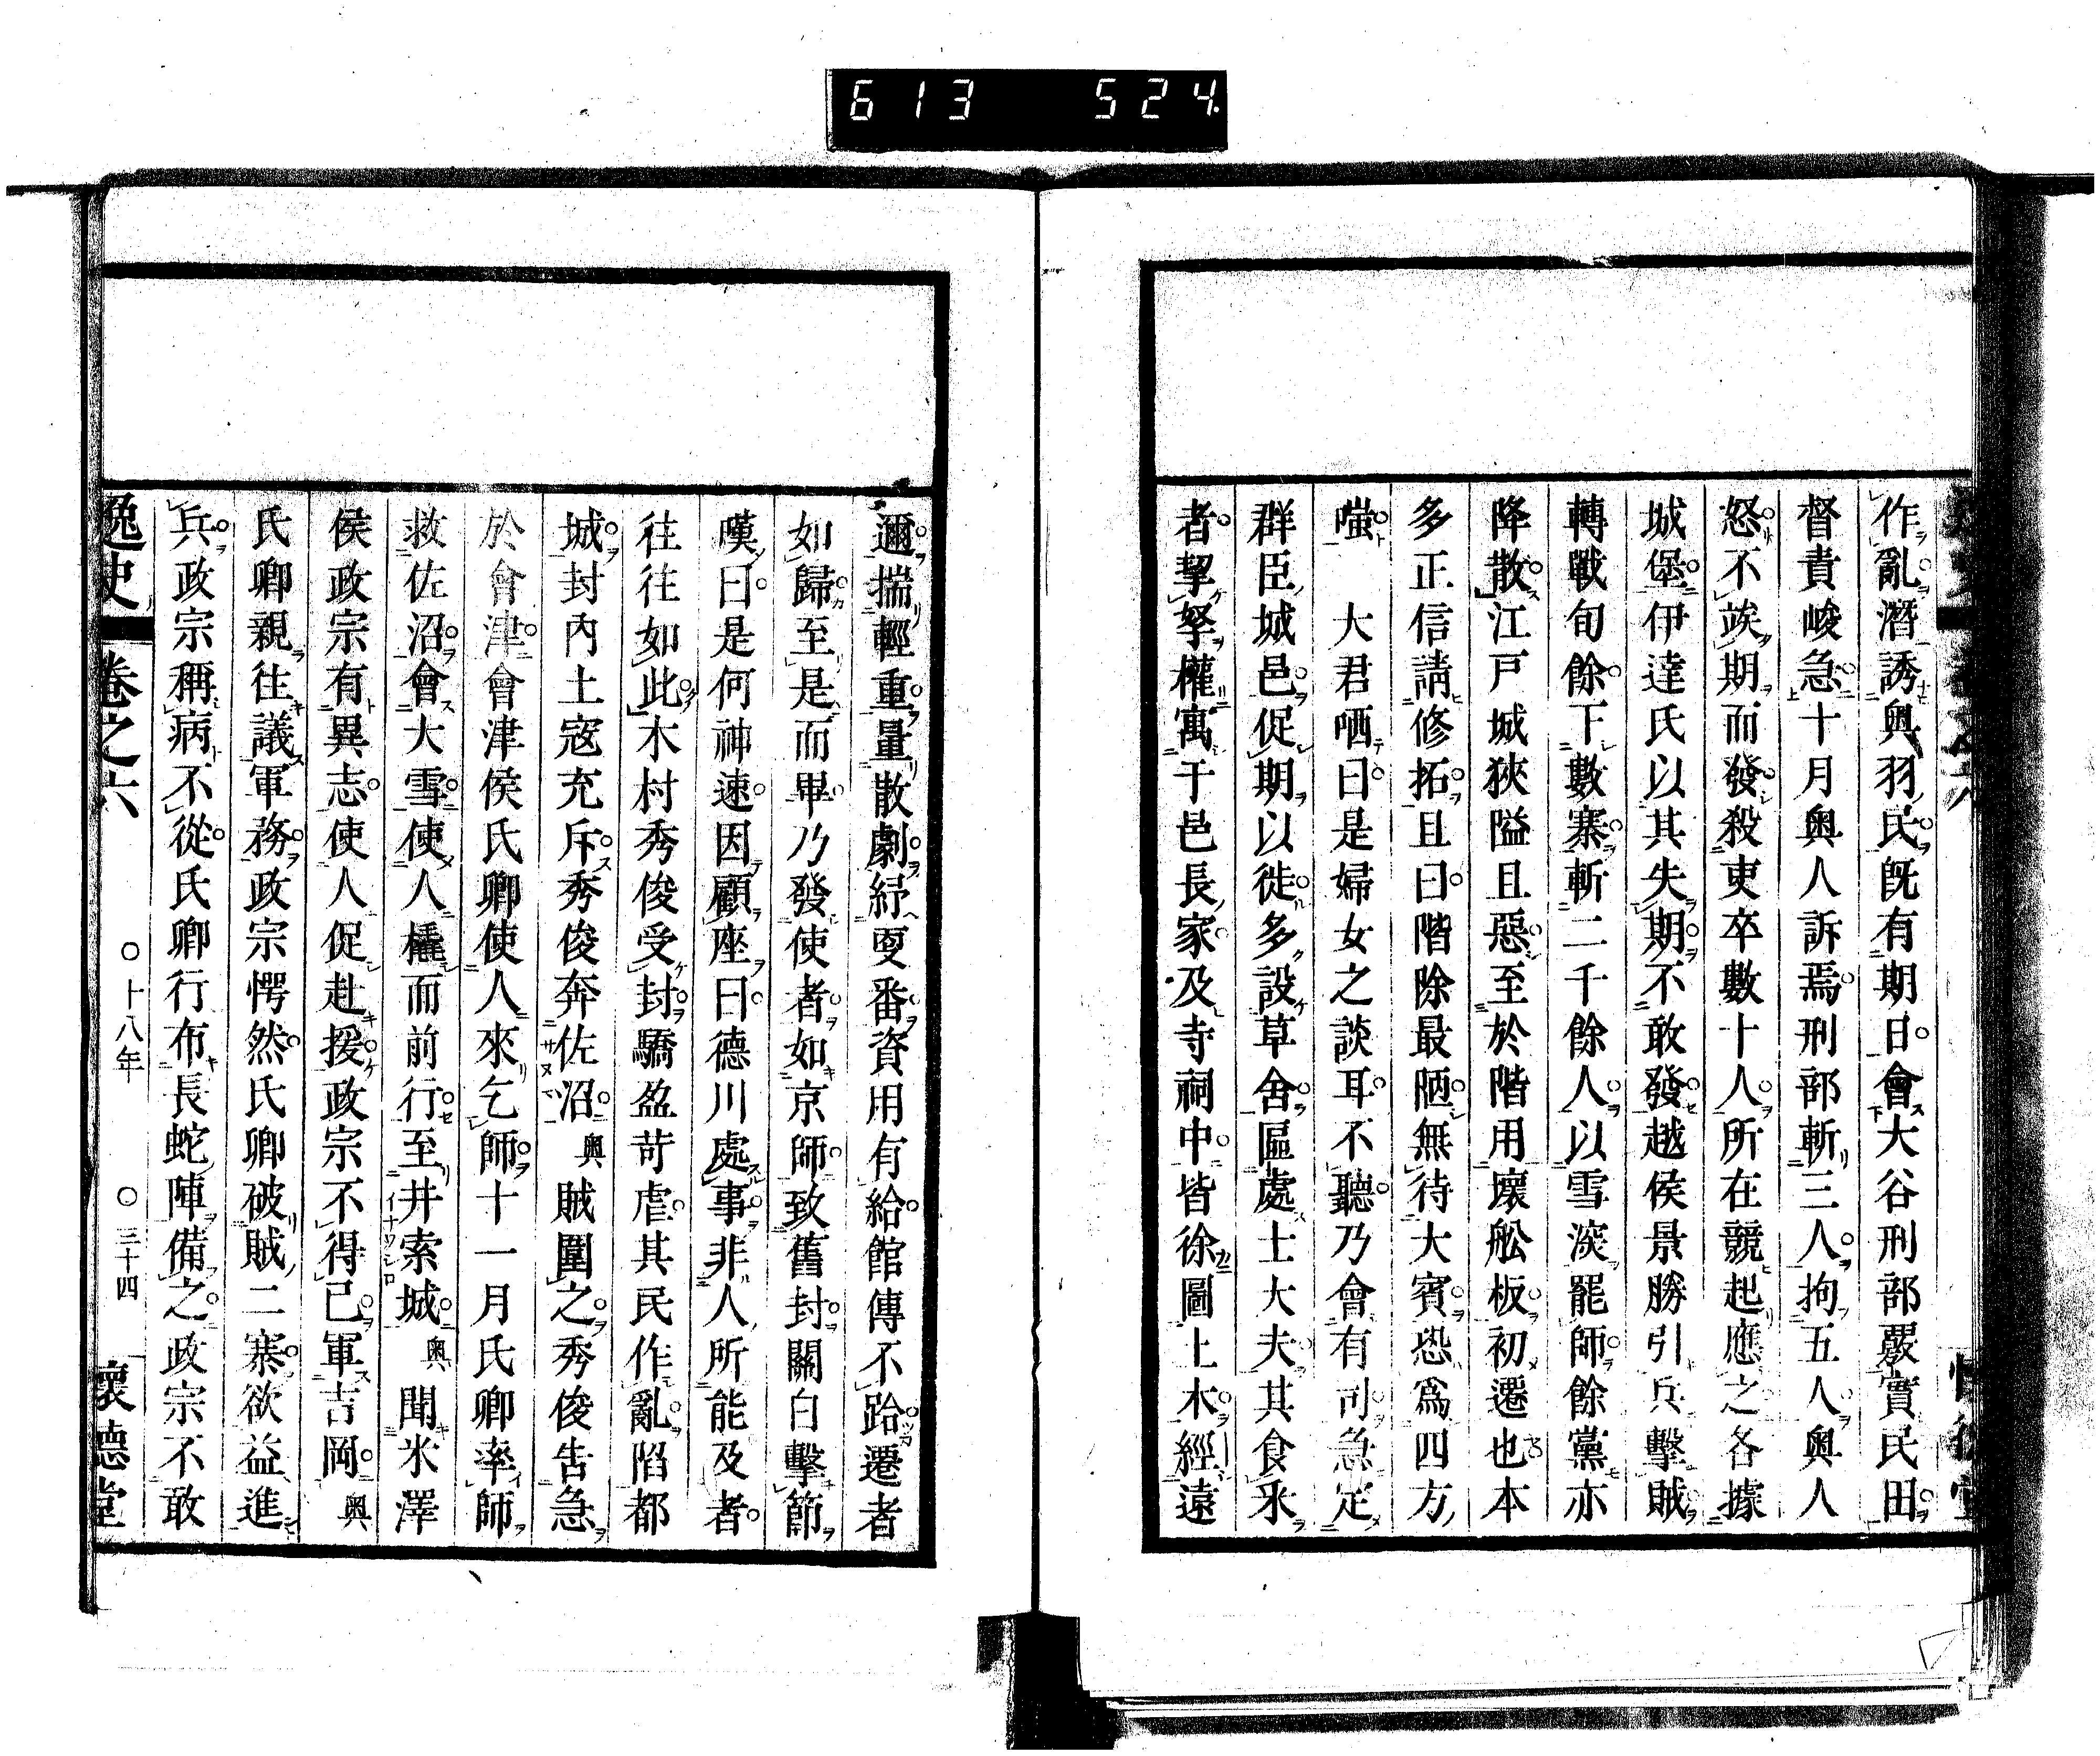 613 524
作亂潛誘奧羽民既有期日會大谷刑部嚴實民田
督責峻急十月奧人訴焉刑部斬三人拘五人奧人
怒不竢期而發殺吏卒數十人所在競起應之各據
城堡伊達氏以其失期不敢發越侯景勝引兵擊賊
轉戰旬餘下數寨斬二千餘人以雪深罷師餘黨亦
降散江戸城狹隘且惡至於階用壞舩板初遷也本
多正信請修拓且曰階除最陋無待大賓恐爲四方
嗤　大君哂曰是婦女之談耳不聽乃會有司急定
群臣城邑促期以徙多設草舍區處士大夫其食釆
者挈孥權寓于邑長家及寺祠中皆徐圖土木經遠
邇揣輕重量散劇紓更番資用有給館傳不跲遷者
如歸至是而畢乃發使者如京師致舊封關白擊節
嘆曰是何神速因顧座曰德川處事非人所能及者
往往如此木村秀俊受封驕盈苛虐其民作亂陷都
城封内土寇充斥秀俊奔佐沼奧賊圍之秀俊告急
於會津會津侯氏卿使人來乞師十一月氏卿率師
救佐沼會大雪使人橇而前行至井索城奧聞米澤
侯政宗有異志使人促赴援政宗不得已軍吉岡奧
氏卿親往議軍務政宗愕然氏卿破賊二寨欲益進
兵政宗稱病不從氏卿行布長蛇陣備之政宗不敢
逸史 卷之六 ○十八年 ○三十四 懷德堂